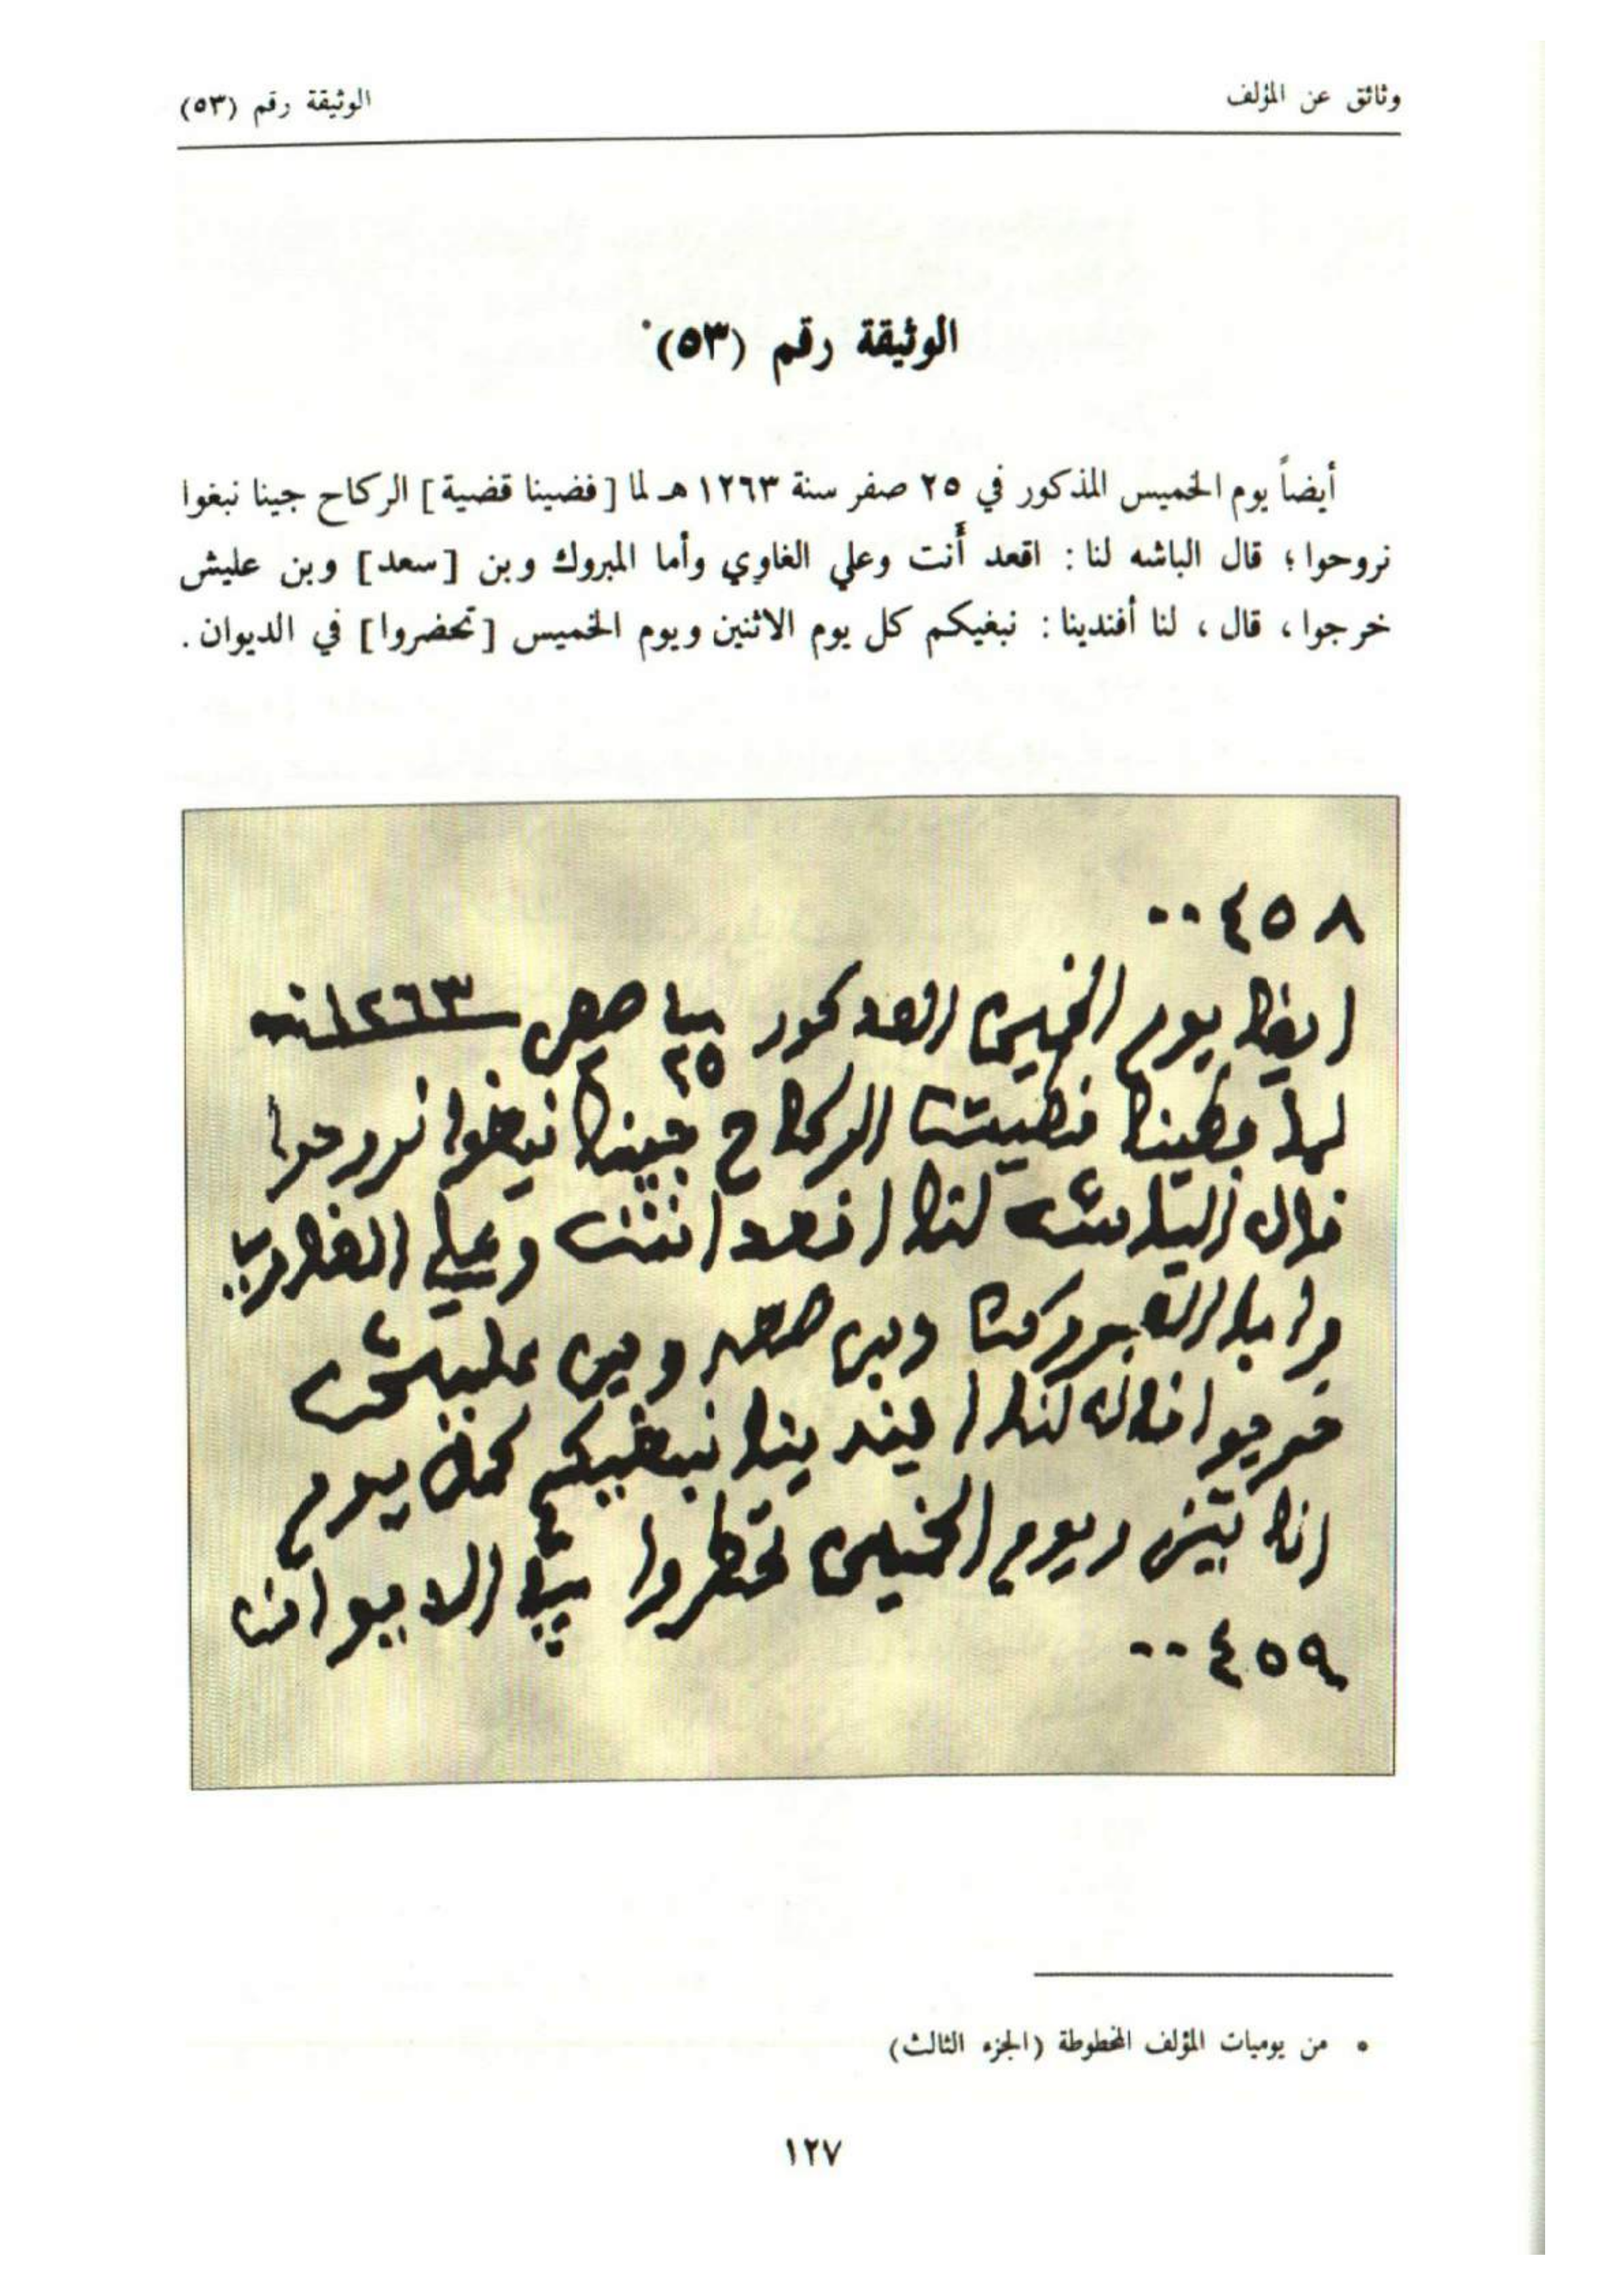 وثائق عن المؤلف
الوثيقة رقم (٥٣)
الوثيقة رقم (٥٣)*
أيضاً يوم الخميس المذكور في ٢٥ صفر سنة ١٢٦٣ هـ لما [فضينا قضية] الركاح جينا نبغوا
نروحوا؛ قال الباشه لنا: اقعد أَنت وعلي الغاوي وأما المبروك وبن [سعد] وبن عليش
خرجوا، قال، لنا أفندينا: نبغيكم كل يوم الاثنين ويوم الخميس [تحضروا] في الديوان.
٠٠٤٥٨
ايظا يوم الخميس المدكور في ٢٥ صفر سنة ١٢٦٣
لما فظينا قظيت الركاح جينا نبغوا نروحوا
قال الباشه لنا اقعد انت وعلي الغاوي
واما المبروك وبن صعد وبن عليش
خرجوا قال لنا افندينا نبغيكم كل يوم
اثنين ويوم الخميس تحظروا في الديوان
٠٠٤٥٩
* من يوميات المؤلف المخطوطة (الجزء الثالث)
١٢٧